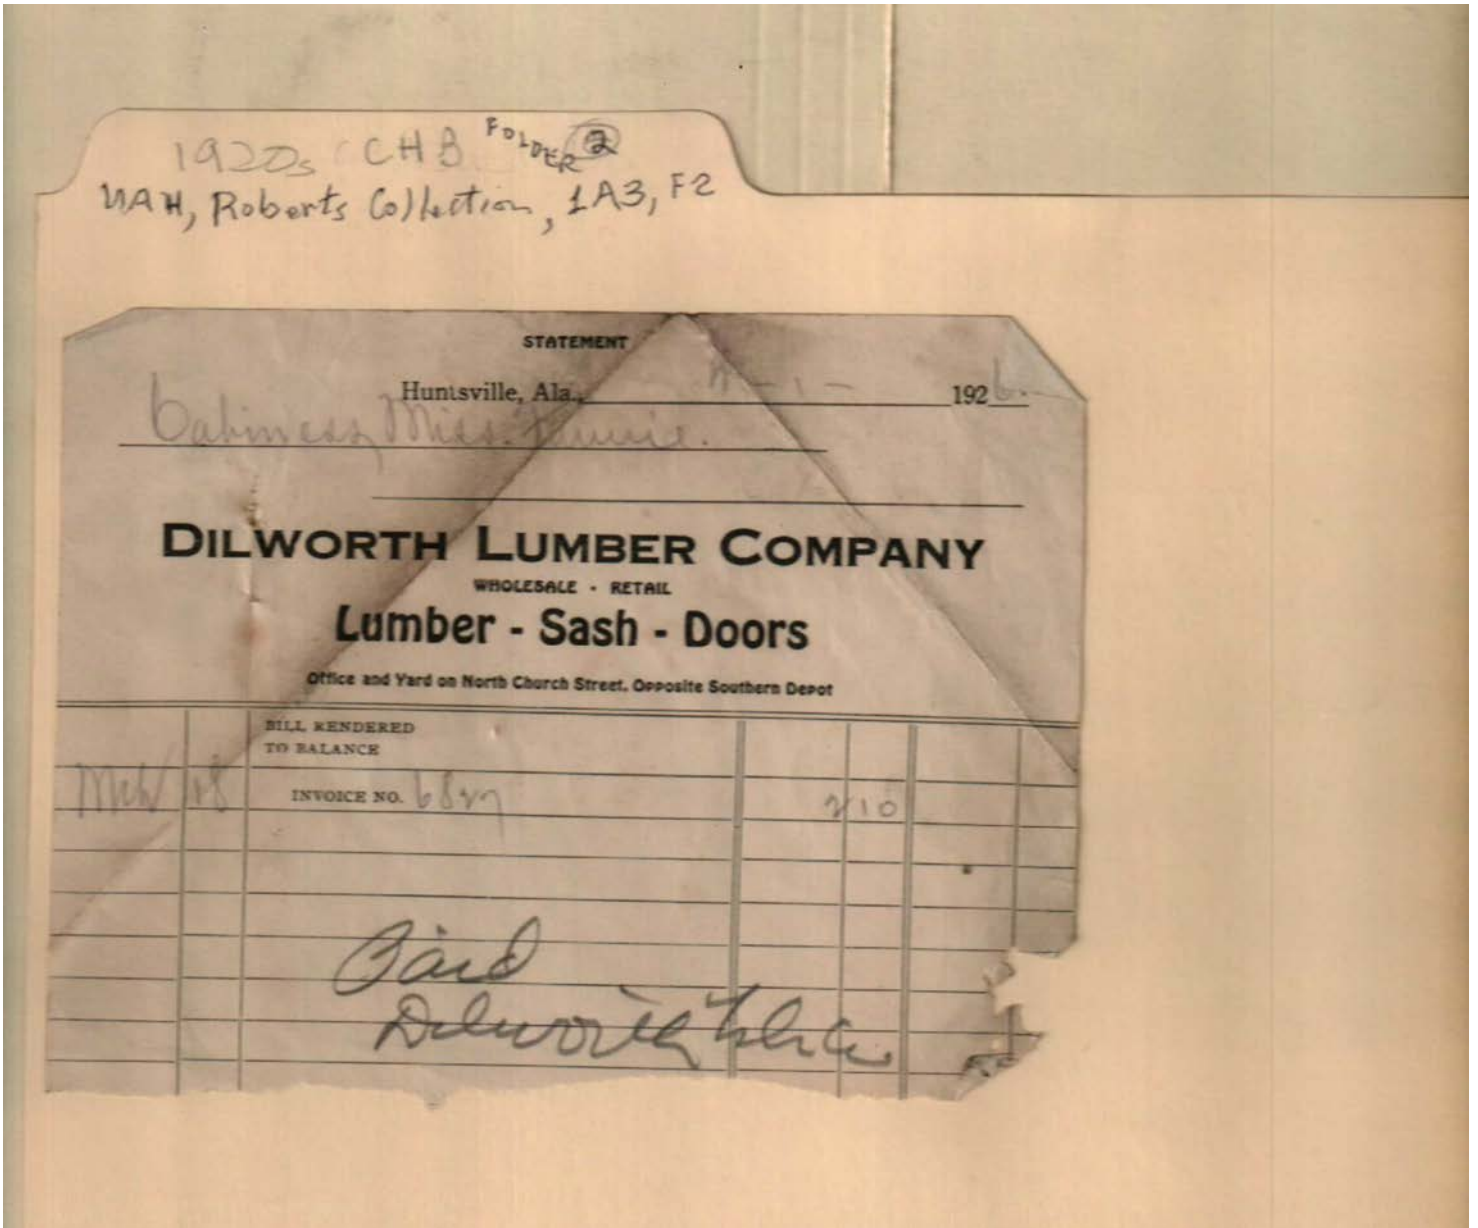 1920s CHB FOLDER 2
UAH, Roberts Collection, 1A3, F2
STATEMENT
Huntsville, Ala., 4-1- 1926.
Cabiness, Miss.
DILWORTH LUMBER COMPANY
WHOLESALE - RETAIL
Lumber - Sash - Doors
Office and Yard on North Church Street, Opposite Southern Depot
BILL RENDERED
TO BALANCE
Mch 18 INVOICE NO. 6827 2 10
Paid
Dilworth Lbr Co.